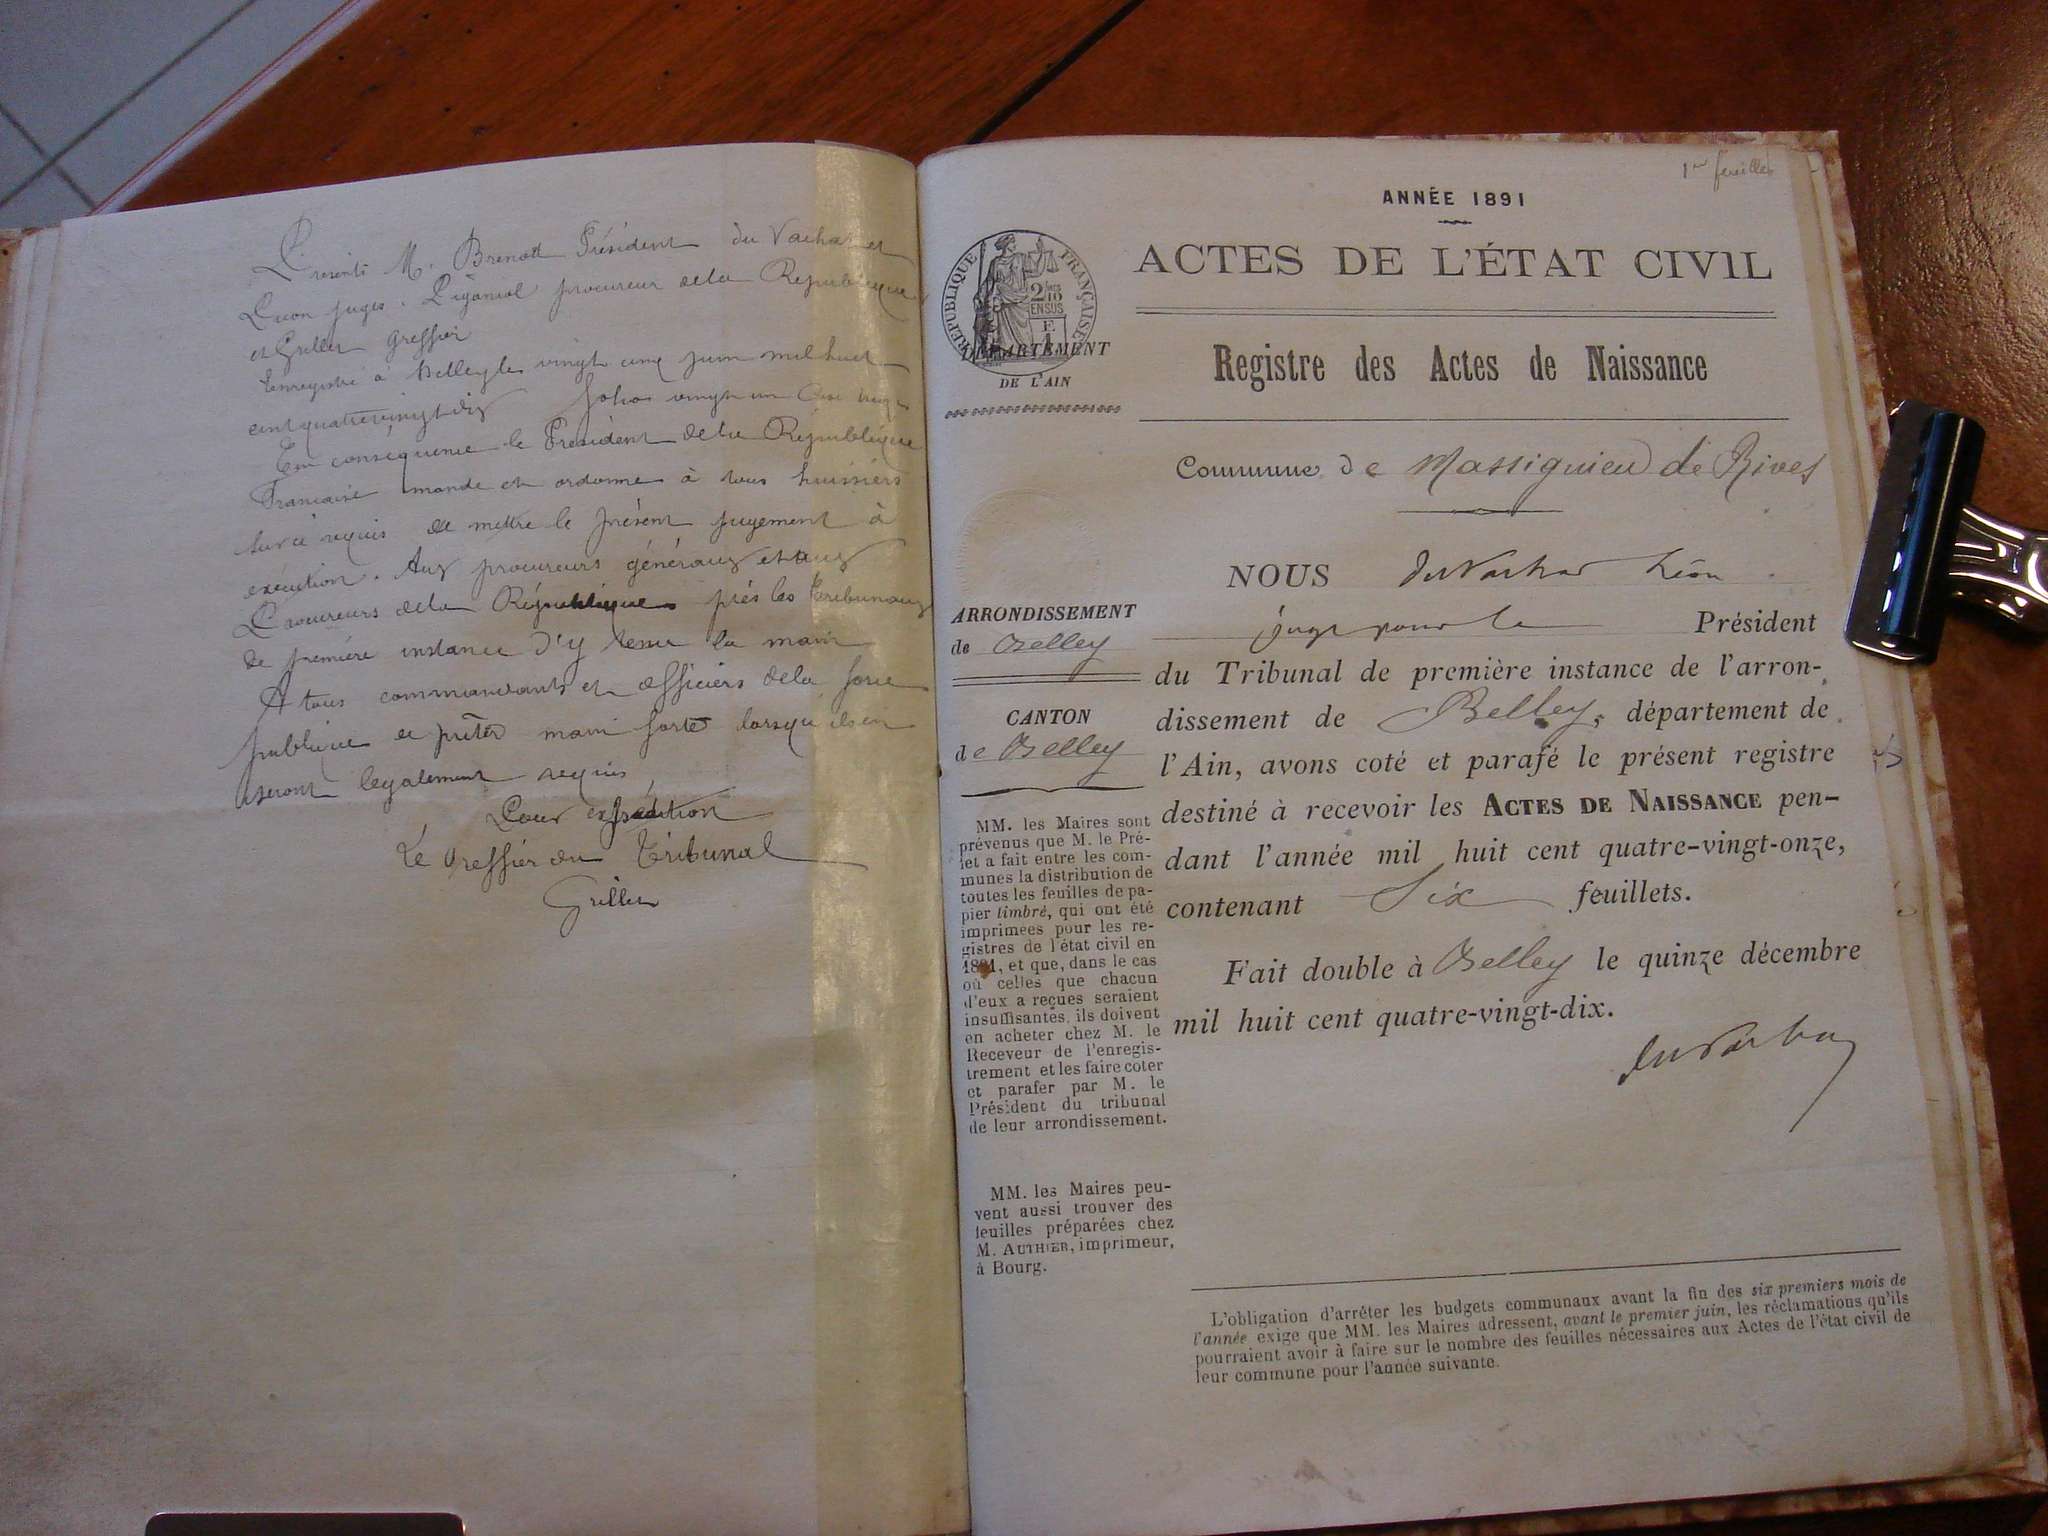 Présents M. Brenott Président du Vachat et
juges. Piganiol procureur de la République
et Grillet greffier
Enregistré à Belley le vingt cinq juin mil huit
cent quatre vingt dix folio vingt un
En conséquence le Président de la République
Française mande et ordonne à tous huissiers
sur ce requis de mettre le présent jugement à
exécution. Aux procureurs généraux et aux
Procureurs de la République près les tribunaux
de première instance d'y tenir la main
A tous commandants et officiers de la force
publique de prêter main forte lorsqu'ils en
seront légalement requis
Pour expédition
Le Greffier du Tribunal
Grillet
1er feuillet
ANNÉE 1891
ACTES DE L'ÉTAT CIVIL
RÉPUBLIQUE FRANÇAISE
2/10 EN SUS
DÉPARTEMENT
DE L'AIN
Registre des Actes de Naissance
Commune de Massignieu de Rives
NOUS du Vachat Léon
juge pour le Président
ARRONDISSEMENT
de Belley
du Tribunal de première instance de l'arron-
dissement de Belley, département de
l'Ain, avons coté et parafé le présent registre
destiné à recevoir les ACTES DE NAISSANCE pen-
dant l'année mil huit cent quatre-vingt-onze,
contenant Six feuillets.
Fait double à Belley le quinze décembre
mil huit cent quatre-vingt-dix.
du Vachat
CANTON
de Belley
MM. les Maires sont
prévenus que M. le Pré-
fet a fait entre les com-
munes la distribution de
toutes les feuilles de pa-
pier timbré, qui ont été
imprimées pour les re-
gistres de l'état civil en
1891, et que, dans le cas
où celles que chacun
d'eux a reçues seraient
insuffisantes, ils doivent
en acheter chez M. le
Receveur de l'enregis-
trement et les faire coter
et parafer par M. le
Président du tribunal
de leur arrondissement.
MM. les Maires peu-
vent aussi trouver des
feuilles préparées chez
M. AUTHIER, imprimeur,
à Bourg.
L'obligation d'arrêter les budgets communaux avant la fin des six premiers mois de
l'année exige que MM. les Maires adressent, avant le premier juin, les réclamations qu'ils
pourraient avoir à faire sur le nombre des feuilles nécessaires aux Actes de l'état civil de
leur commune pour l'année suivante.